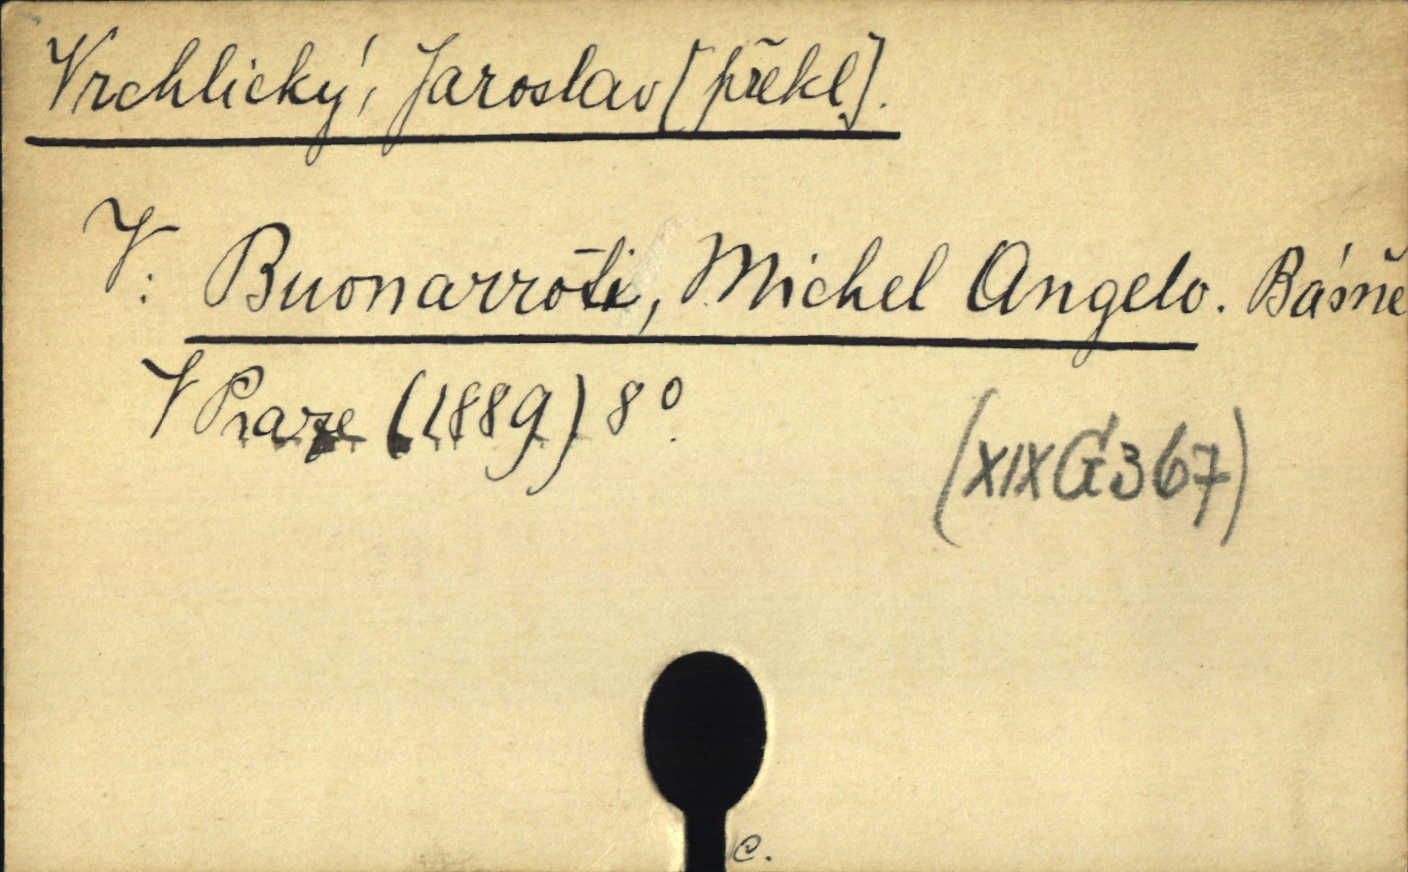 Vrchlický, Jaroslav [překl].
V: Buonarroti, Michel Angelo. Básně
V Praze (1889) 8°.
(XIX G 367)
C.